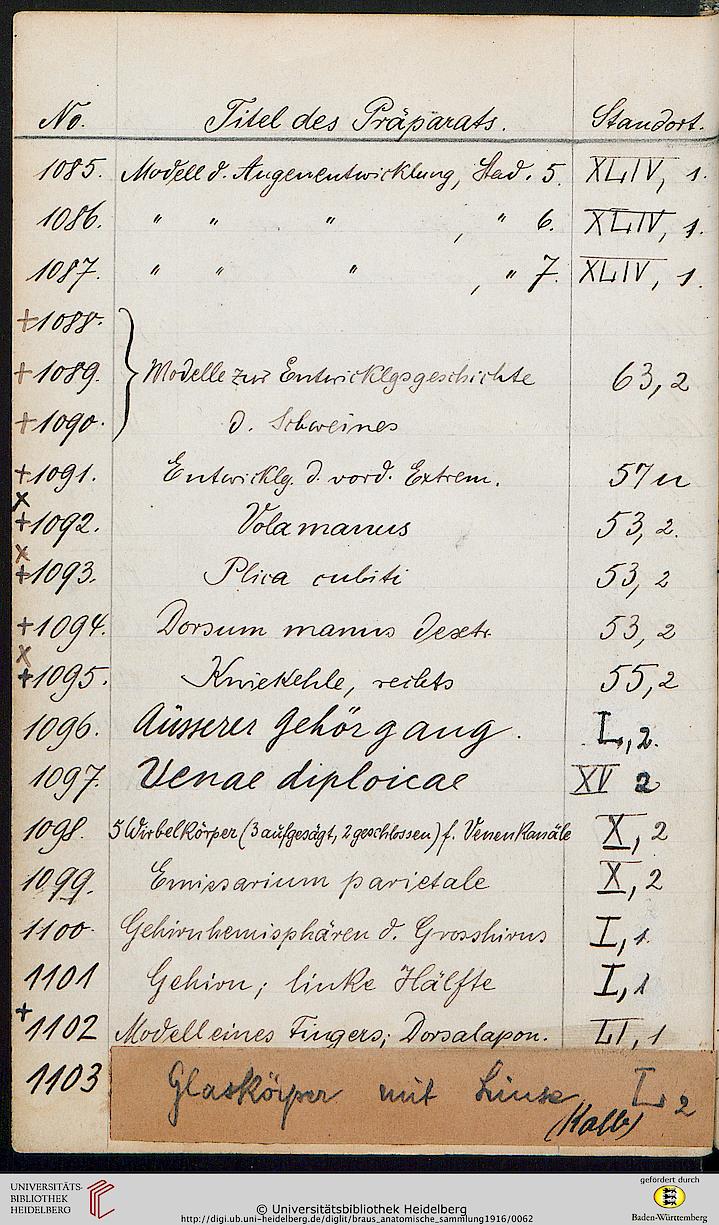 No. Titel des Präparats. Standort.
1085. Modell d. Augenentwicklung, Stad. 5. XLIV, 1.
1086. " " " , " 6. XLIV, 1.
1087. " " " , " 7. XLIV, 1.
+1088.
+1089. Modelle zur Entwicklgsgeschichte 63, 2
+1090. d. Schweines
+1091. Entwicklg. d. vord. Extrem. 57 u
x
+1092. Vola manus 53, 2.
x
+1093. Plica cubiti 53, 2
+1094. Dorsum manus dextr. 53, 2
x
+1095. Kniekehle, rechts 55, 2
1096. Äusserer Gehörgang. L, 2.
1097. Venae diploicae XV 2
1098. 5 Wirbelkörper (3 aufgesägt, 2 geschlossen) f. Venenkanäle X, 2
1099. Emissarium parietale X, 2
1100. Gehirnhemisphären d. Grosshirns I, 1.
1101 Gehirn; linke Hälfte I, 1
+1102 Modell eines Fingers; Dorsalapon. LI, 1
1103 Glaskörper mit Linse L, 2
(Kalb)
UNIVERSITÄTS-
BIBLIOTHEK
HEIDELBERG
© Universitätsbibliothek Heidelberg
http://digi.ub.uni-heidelberg.de/diglit/braus_anatomische_sammlung1916/0062
gefördert durch
Baden-Württemberg